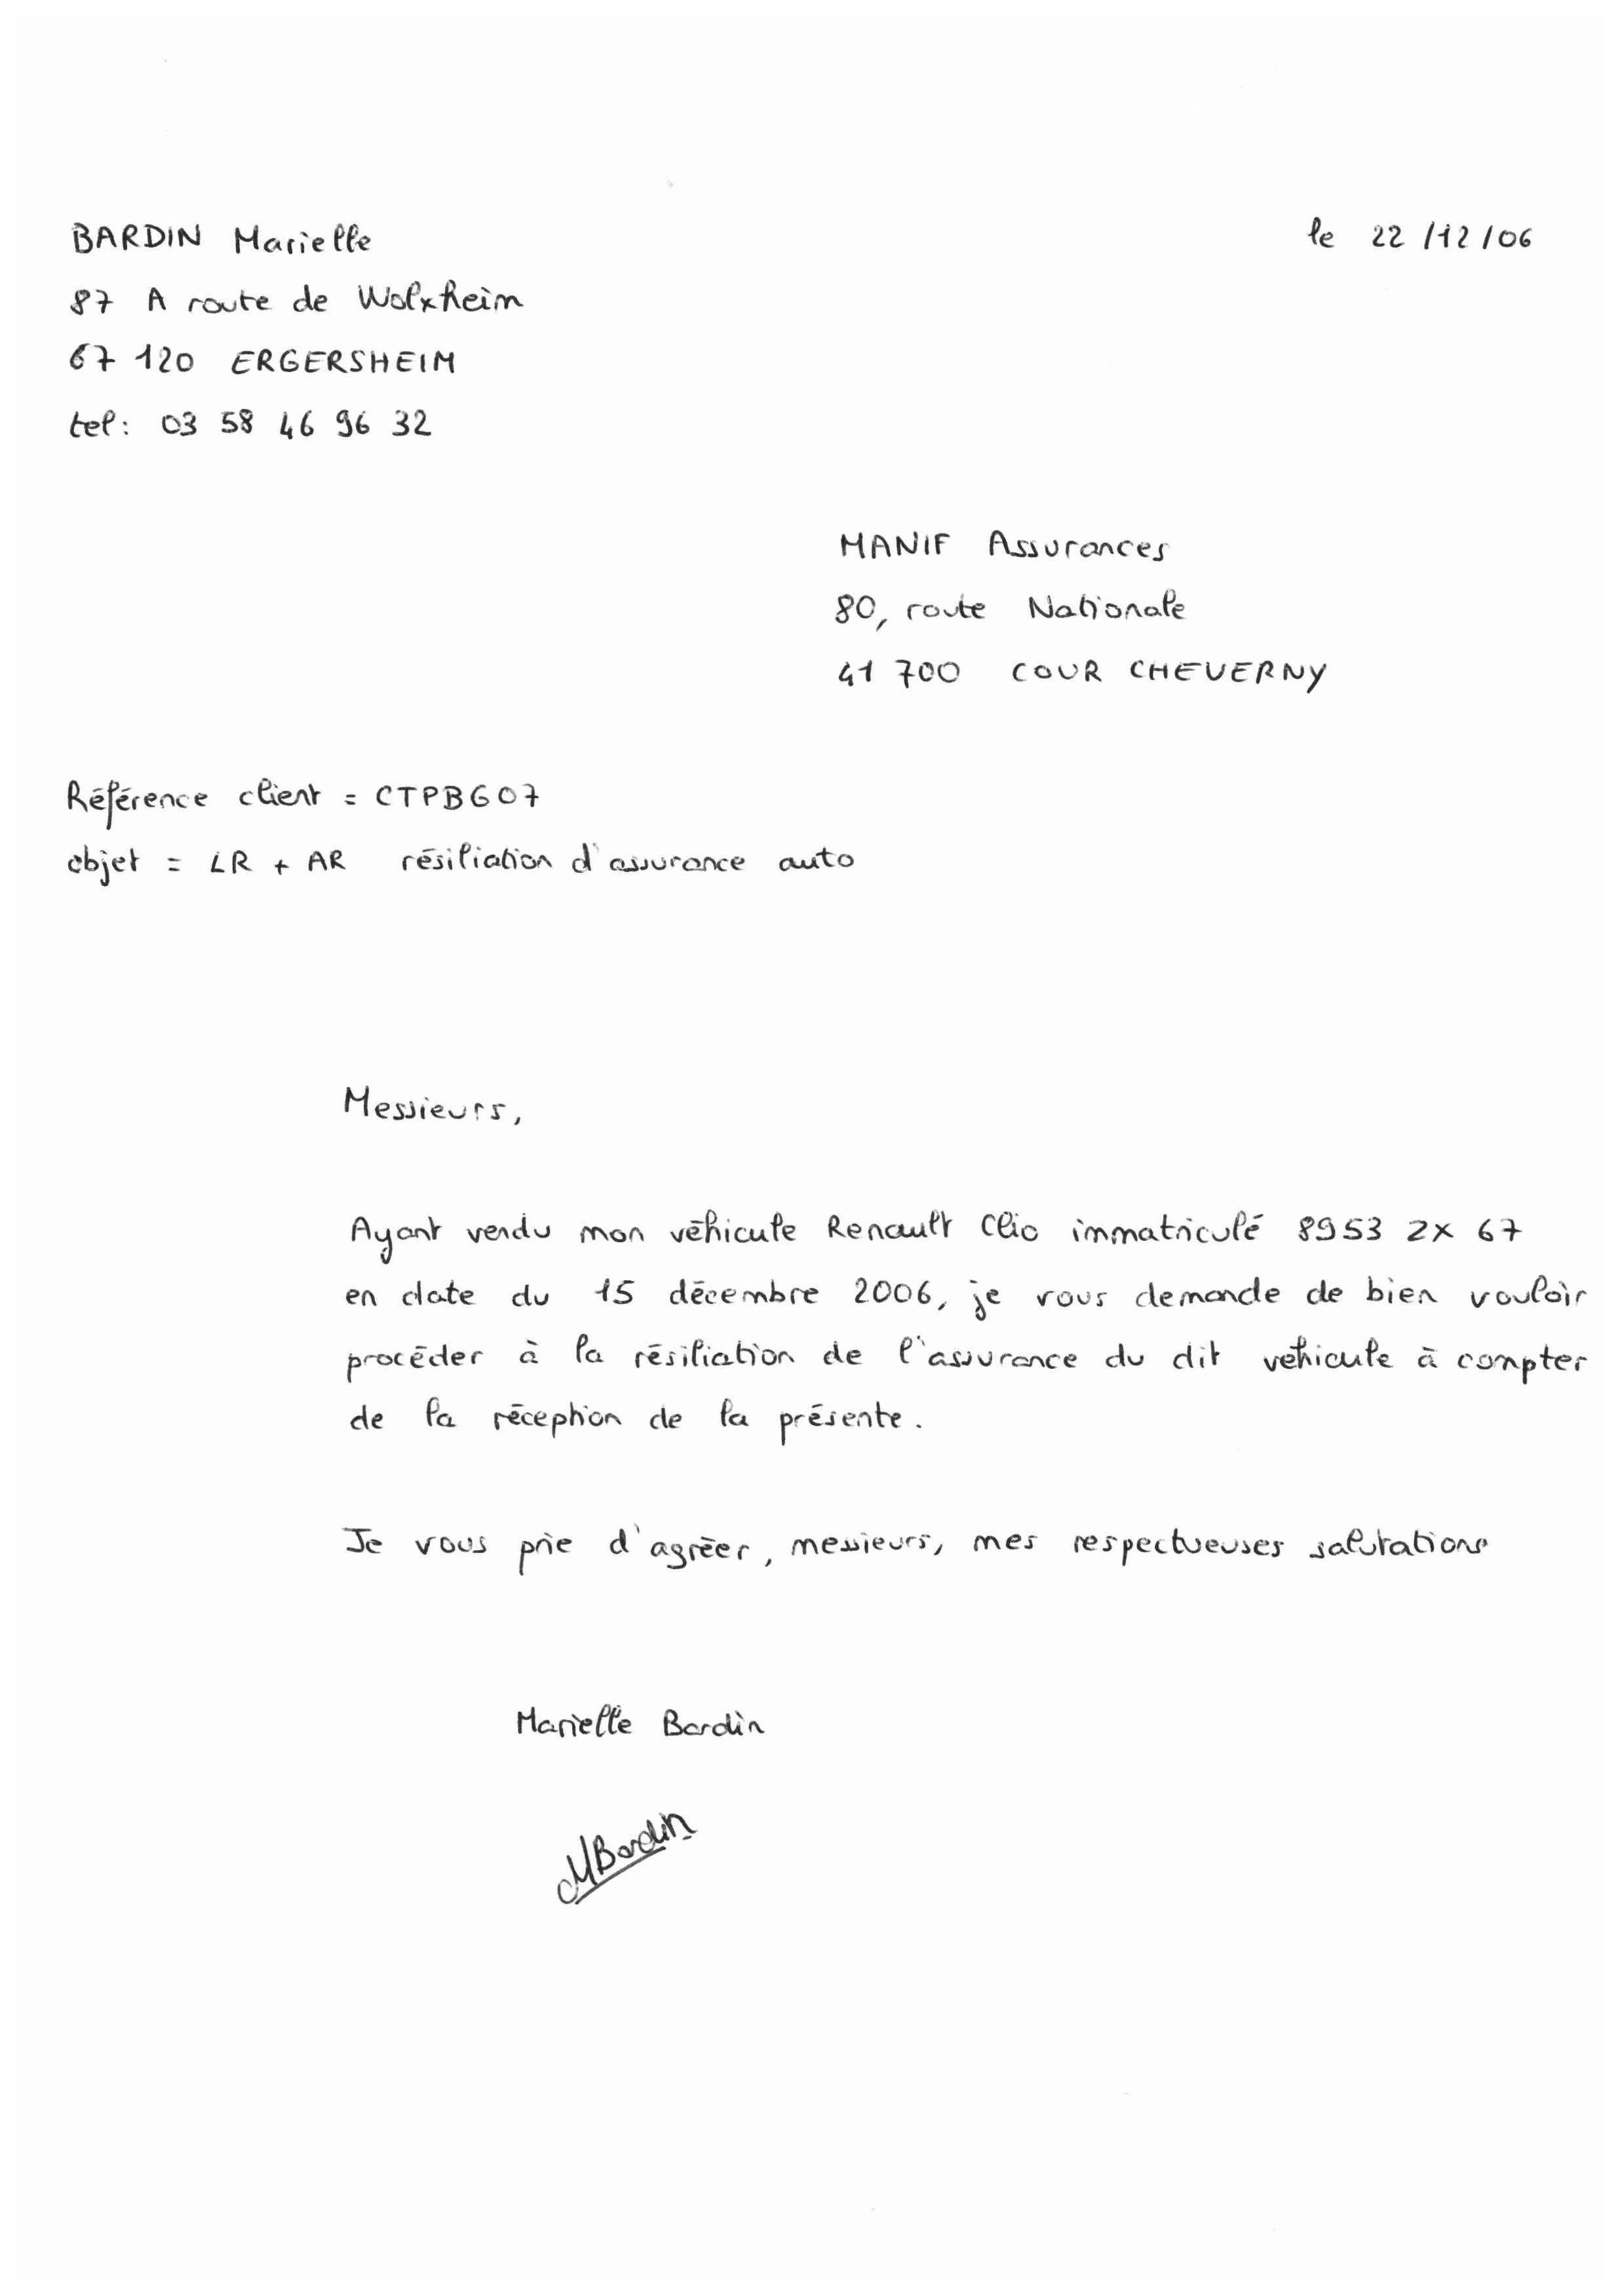 BARDIN Marielle
le 22/12/06
87 A route de Wolxheim
67 120 ERGERSHEIM
tel: 03 58 46 96 32
MANIF Assurances
80, route Nationale
41 700 COUR CHEVERNY
Référence client = CTPBG07
objet = LR + AR résiliation d'assurance auto
Messieurs,
Ayant vendu mon véhicule Renault Clio immatriculé 8953 ZX 67
en date du 15 décembre 2006, je vous demande de bien vouloir
procéder à la résiliation de l'assurance du dit véhicule à compter
de la réception de la présente.
Je vous prie d'agréer, messieurs, mes respectueuses salutations
Marielle Bardin
MBardin